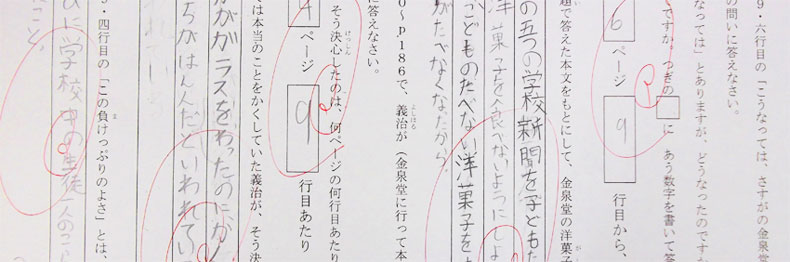 9・六行目の「こうなっては、さすがの金泉
の問いに答えなさい。
なっては」とありますが、どうなったのですか
ですか。つぎの□に、あう数字を書いて答
6 ページ 9 行目から、
題で答えた本文をもとにして、金泉堂の洋菓子
の五つの学校新聞を子どもた
洋菓子を食べないようにしよ
こどものたべない洋菓子を
がたべなくなたから。
0～p186で、義治が(金泉堂に行って本
に答えなさい。
そう決心したのは、何ページの何行目あたり
ページ 9 行目あたり
ては本当のことをかくしていた義治が、そう決
がガラスをわったのにか
ちがはんんだといわれてい
れている
・四行目の「この負けっぷりのよさ」とは、
ひに学校中の生徒一人のこら
こと。